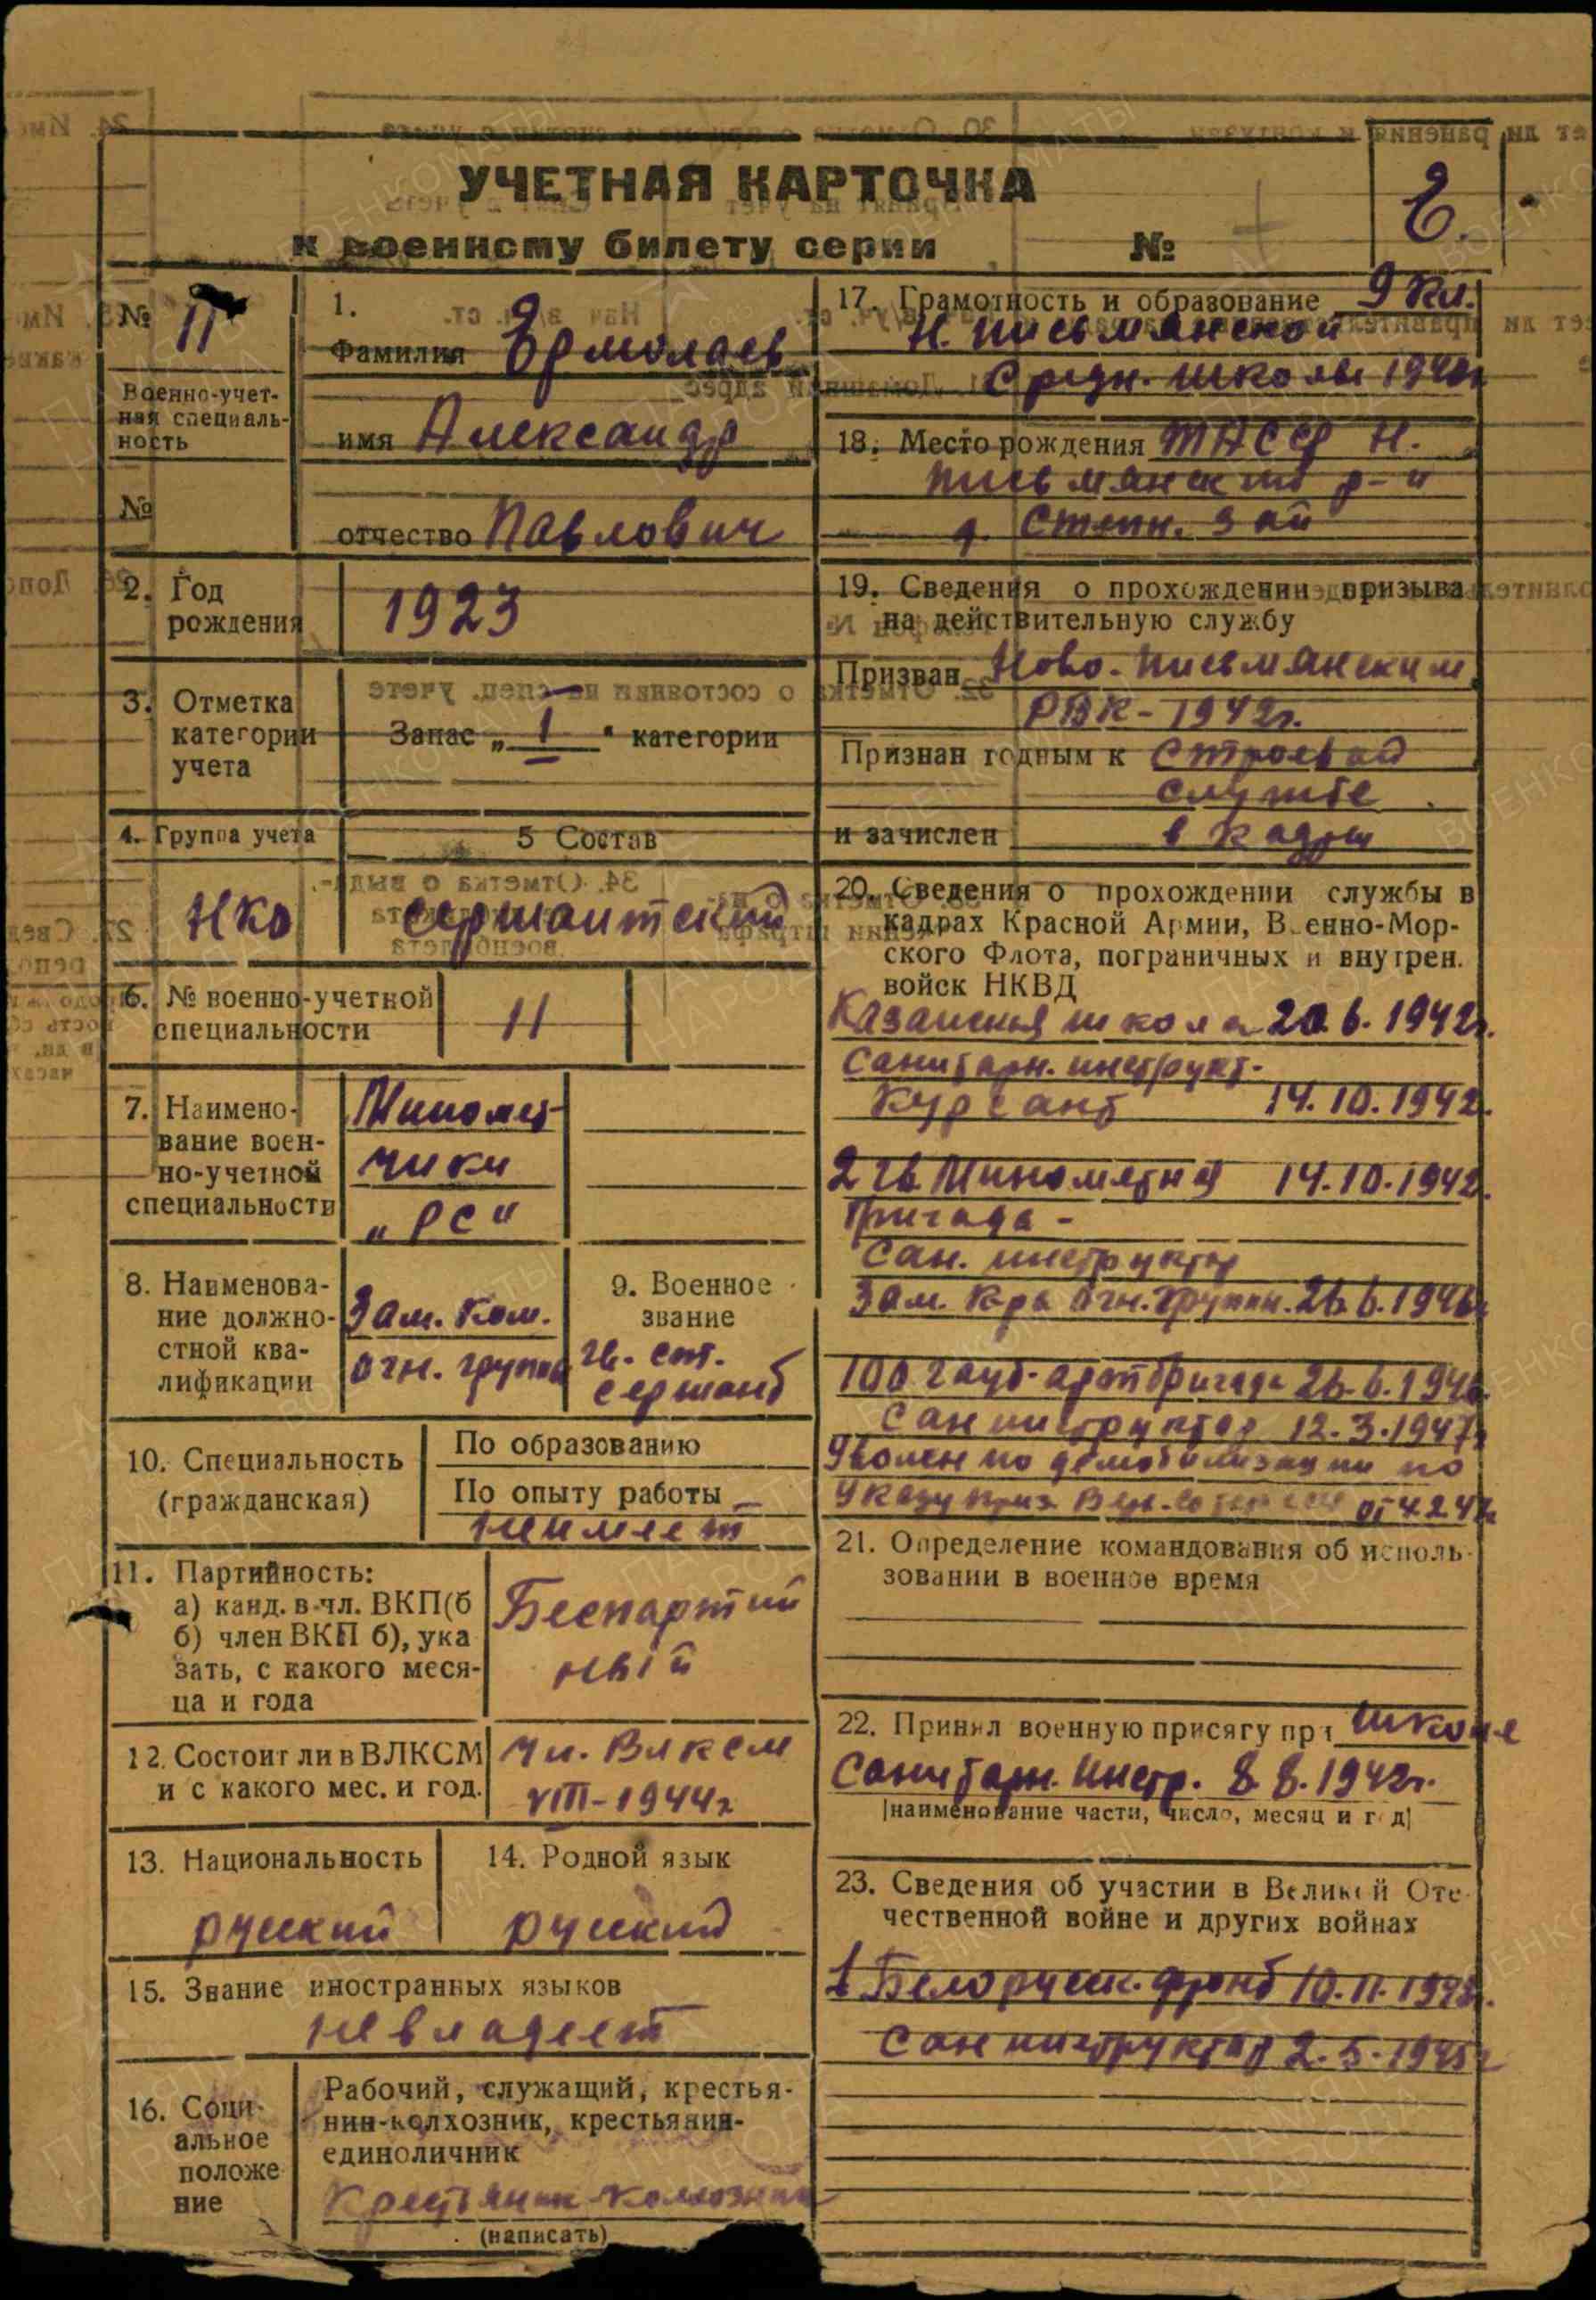 УЧЕТНАЯ КАРТОЧКА
Е.
к военному билету серии №
№ 11
Военно-учет-
ная специаль-
ность
№
1.
Фамилия Ермолаев
имя Александр
отчество Павлович
2. Год
рождения
1923
3. Отметка
категории
учета
Запас „ 1 " категории
4. Группа учета
НКО
5 Состав
сержантский
6. № военно-учетной
специальности
11
7. Наимено-
вание воен-
но-учетной
специальности
Миномет-
чики
„РС"
8. Наименова-
ние должно-
стной ква-
лификации
Зам. Ком.
огн. группы
9. Военное
звание
гв. ст.
сержант
10. Специальность
(гражданская)
По образованию
По опыту работы
не имеет
11. Партийность:
а) канд. в чл. ВКП(б
б) член ВКП б), ука
зать, с какого меся-
ца и года
Беспартий
ный
12. Состоит ли в ВЛКСМ
и с какого мес. и год.
чл. ВЛКСМ
VIII-1944г
13. Национальность
русский
14. Родной язык
русский
15. Знание иностранных языков
не владеет
16. Соци-
альное
положе
ние
Рабочий, служащий, крестья-
нин-колхозник, крестьянин-
единоличник
Крестьянин-колхозник
(написать)
17. Грамотность и образование 9 кл.
Н. Письмянской
Средн. школы 1940г
18. Место рождения ТАССР Н.
Письмянский р-н
д. Степн. Зай
19. Сведения о прохождении призыва
на действительную службу
Призван Ново-Письмянским
РВК-1942г.
Признан годным к строевой
службе
и зачислен в кадры
20. Сведения о прохождении службы в
кадрах Красной Армии, Военно-Мор-
ского Флота, пограничных и внутрен.
войск НКВД
Казанская школа 20.6.1942г.
Санитарн. инструкт-
Курсант 14.10.1942.
2 гв. Минометная 14.10.1942.
бригада -
Сан. инструктор
Зам. Кра огн. группы. 26.6.1946г
100 гауб-артбригада 26.6.1946.
Санинструктор 12.3.1947г
Уволен по демобилизации по
Указу През. Вер. от 4.2.47г
21. Определение командования об исполь-
зовании в военное время
22. Принял военную присягу при школе
Санитарн. Инстр. 8.8.1942г.
|наименование части, число, месяц и год|
23. Сведения об участии в Великой Оте-
чественной войне и других войнах
1 Белорусск. фронт 10.11.1943г.
Санинструктор 2.5.1945г